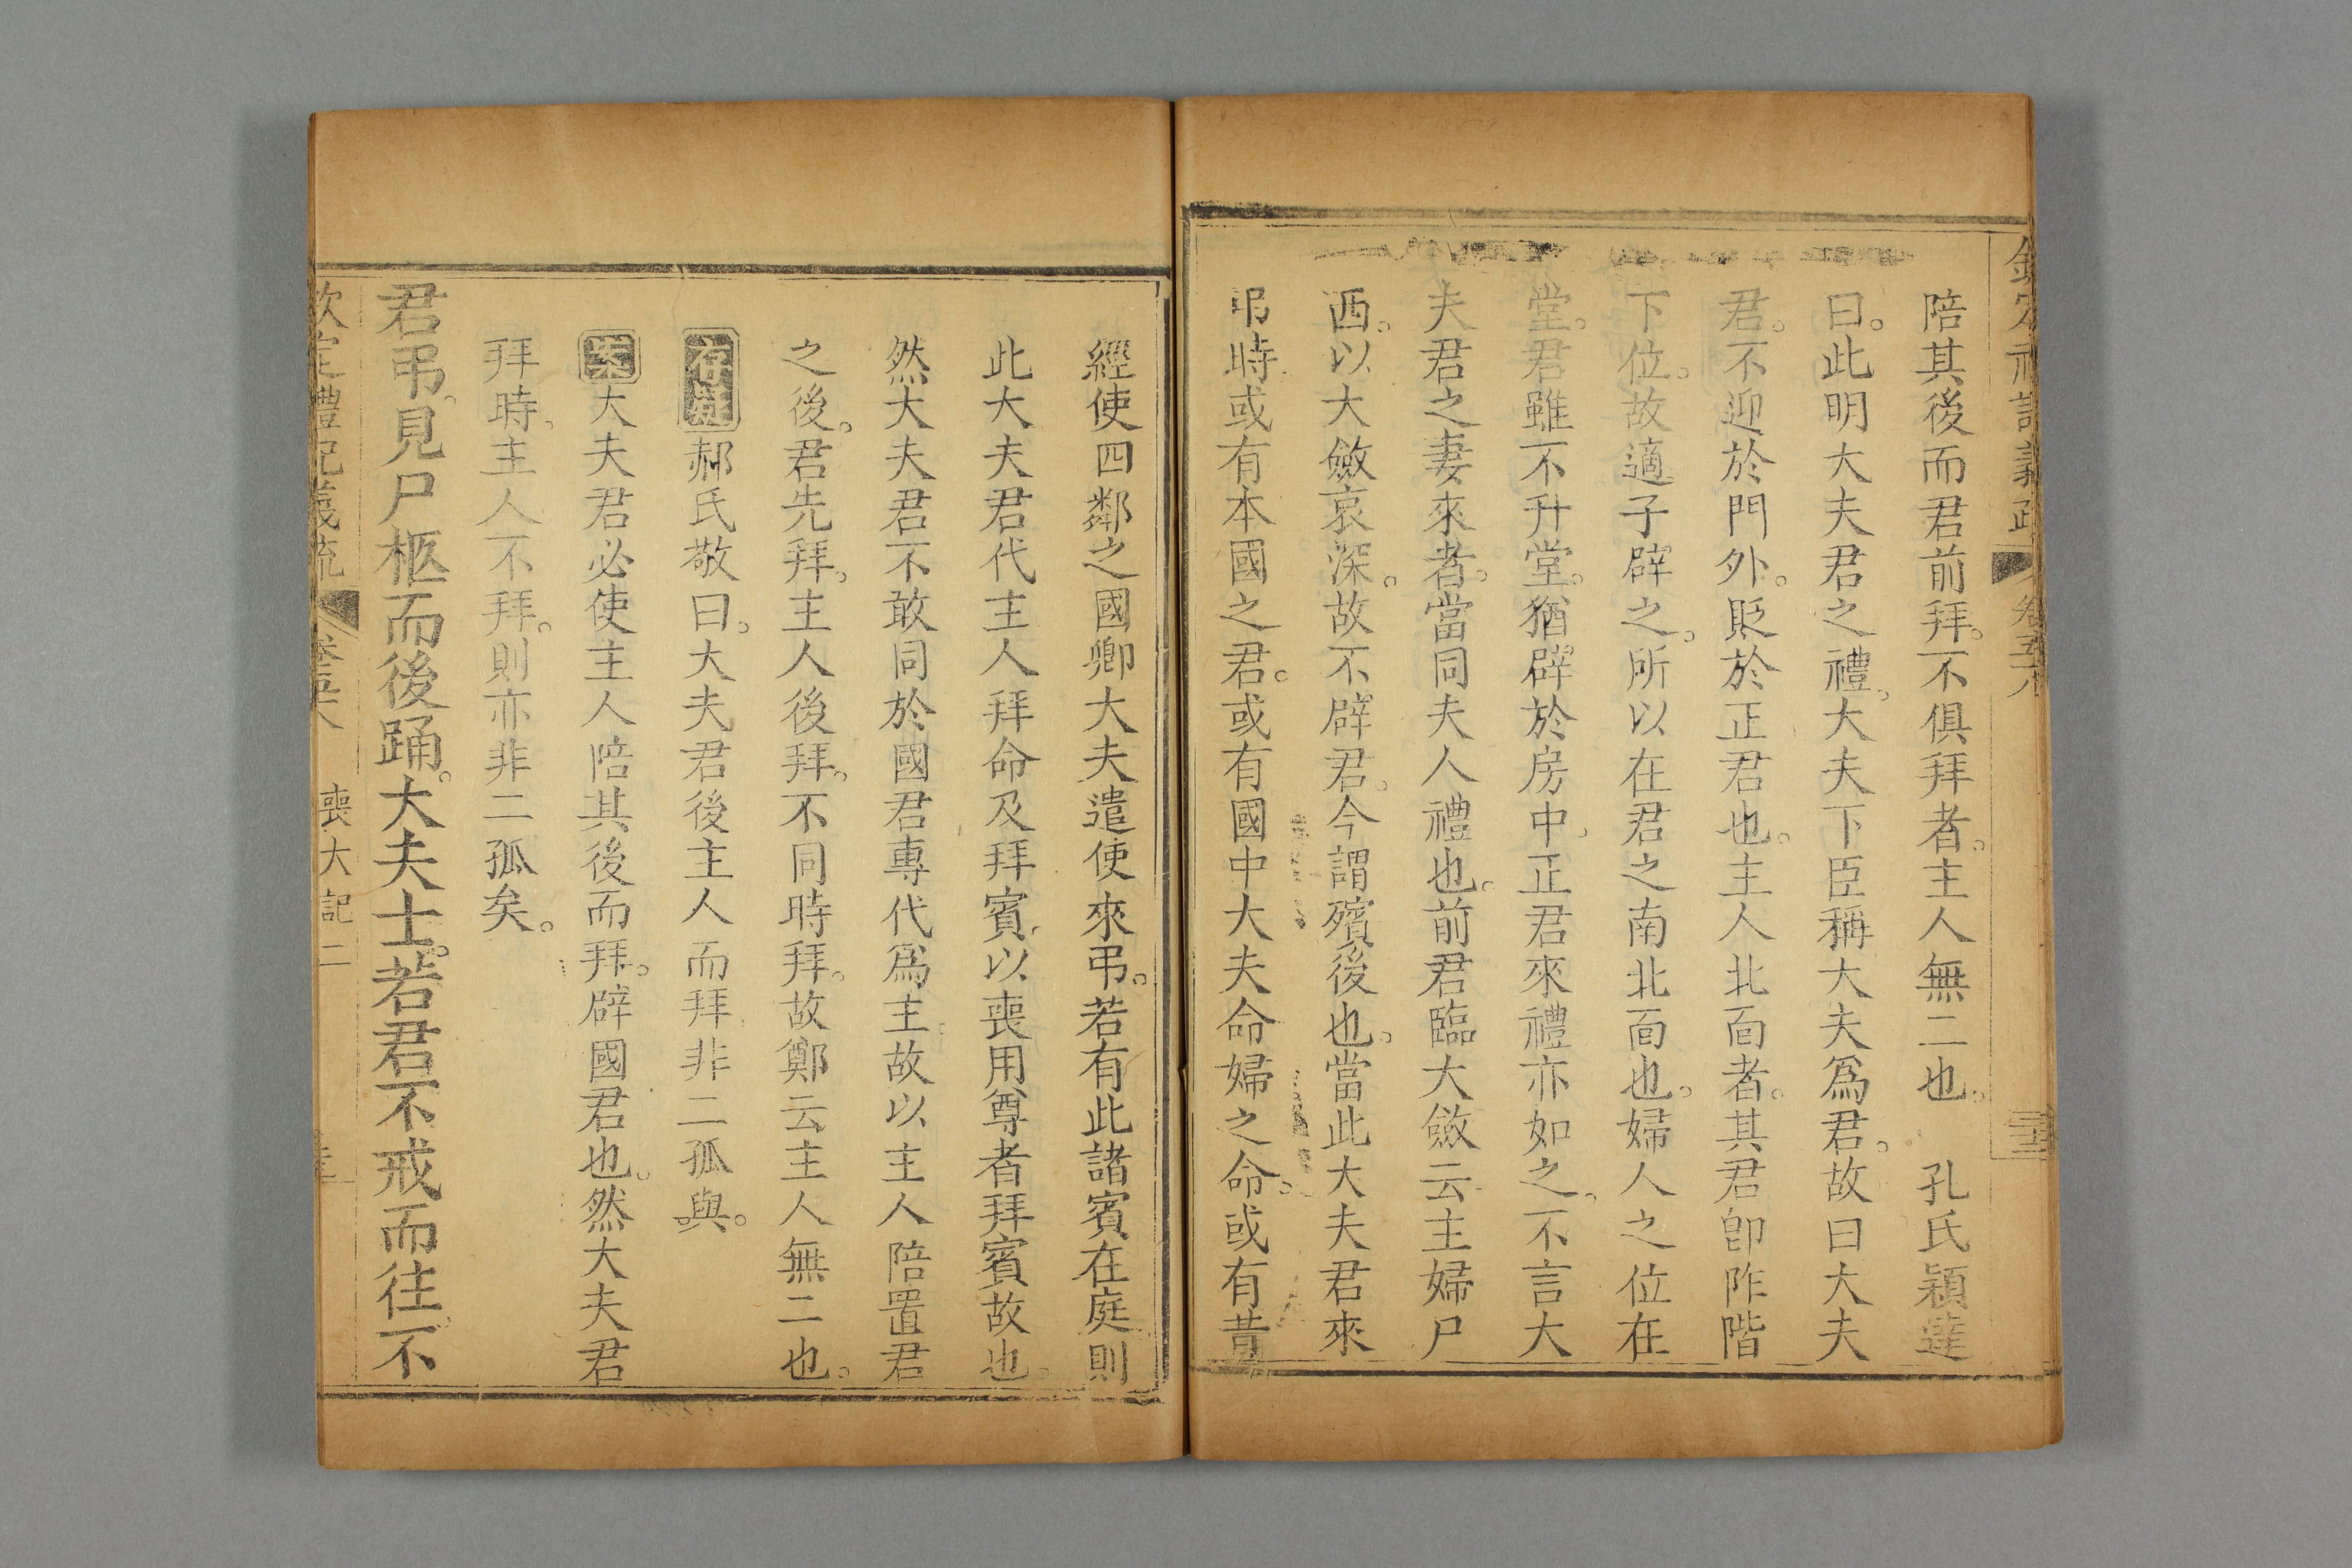 欽定禮記義疏 卷五十八
陪其後而君前拜。不俱拜者。主人無二也。 孔氏穎達
曰。此明大夫君之禮。大夫下臣稱大夫爲君。故曰大夫
君。不迎於門外。貶於正君也。主人北面者。其君卽阼階
下位。故適子辟之。所以在君之南北面也。婦人之位在
堂。君雖不升堂。猶辟於房中。正君來禮亦如之。不言大
夫君之妻來者。當同夫人禮也。前君臨大斂云主婦尸
西。以大斂哀深。故不辟君。今謂殯後也。當此大夫君來
弔時或有本國之君。或有國中大夫命婦之命。或有昔
經使四鄰之國卿大夫遣使來弔。若有此諸賓在庭則
此大夫君代主人拜命及拜賓。以喪用尊者拜賓故也。
然大夫君不敢同於國君專代爲主故以主人陪置君
之後。君先拜。主人後拜。不同時拜。故鄭云主人無二也。
存疑郝氏敬曰。大夫君後主人而拜非二孤與。
案大夫君必使主人陪其後而拜。辟國君也。然大夫君
拜時。主人不拜。則亦非二孤矣。
君弔。見尸柩而後踊。大夫士。若君不戒而往。不
欽定禮記義疏 卷五十八 喪大記二